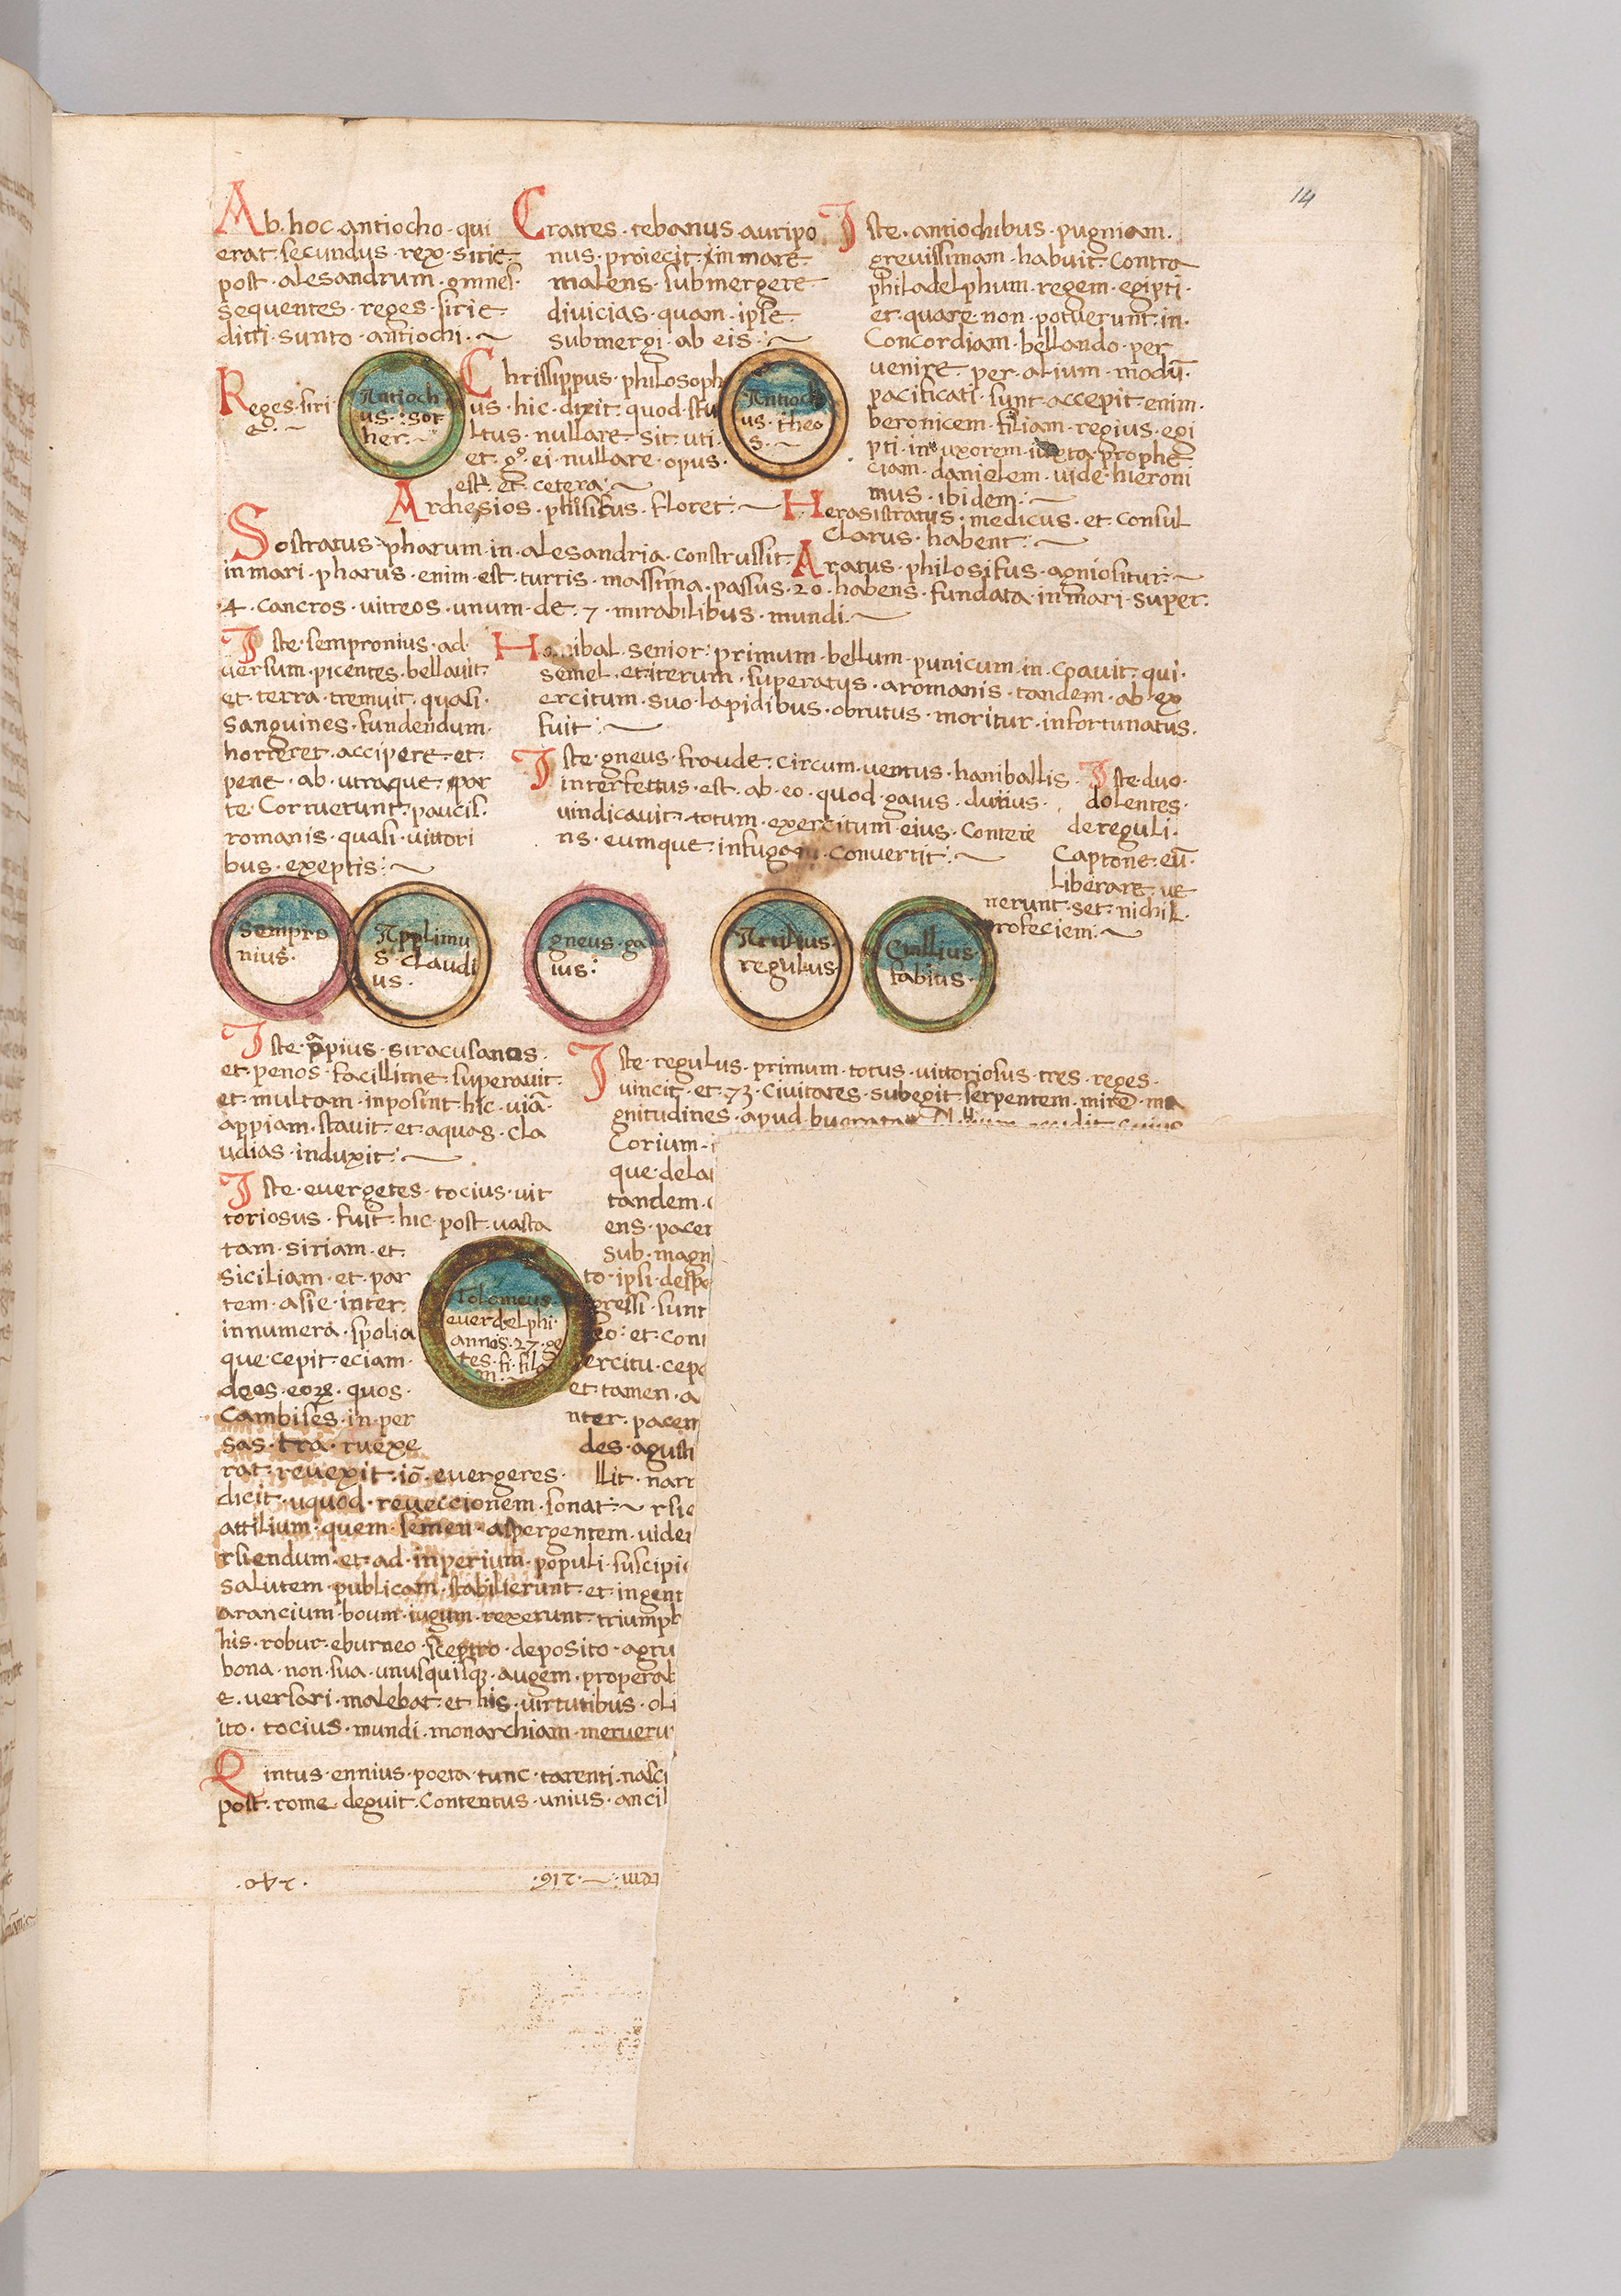 14
Ab. hoc. antiocho. qui
erat. secundus. rex. sirie.
post. alesandrum. omnes.
sequentes. reges. sirie.
ditti. sunto. antiochi.
Crates. tebanus. auripo
nus. proiecit. in mare.
malens. submergere
divicias. quam. ipse.
submergi. ab eis.
Iste. antiochibus. pugniam.
grevissimam. habuit. contra
philadelphum. regem. egipti.
et. quare. non. potuerunt. in.
Concordiam. bellando. per
venire. per. alium. modū.
pacificati. sunt. accepit enim.
beronicem. filiam. regius. egi
pti. in. uxorem. iuxta. prophe
ciam. danielem. vide. hieroni
mus. ibidem.
Reges. siri
e.
Antioch
us. sot
her.
Chrissippus. philosoph
us. hic. dixit. quod. stu
ltus. nullare. sit. uti.
et. gº. ei. nullare. opus.
est. et. cetera.
Antioch
us. theo
s.
Archesios. phisikus. floret.
Herasistratus. medicus. et consul
Clarus. habent.
Sostratus. pharum. in. alesandria. construssit.
Aratus. philosifus. agniositur.
in mari. pharus. enim. est. turris. massima. passus. 20. habens. fundata. in mari. super.
4. cancros. vitreos. unum. de. 7. mirabilibus. mundi.
Iste. sempronius. ad.
versum. picentes. bellavit.
et. terra. tremuit. quasi.
sanguines. fundendum.
horreret. accipere. et.
pene. ab. utraque. par
te. Corruerunt. paucis.
romanis. quasi. vittori
bus. exeptis.
Hanibal. senior. primum. bellum. punicum. in. coavit. qui.
semel. et iterum. superatus. aromanis. tandem. ab. ex
ercitum. suo. lapidibus. obrutus. moritur. infortunatus.
fuit.
Iste. gneus. fraude. circum. ventus. haniballis.
interfettus. est. ab. eo. quod. gaius. dutius.
vindicavit. totum. exercitum. eius. Contere
ns. eumque. infugam. convertit.
Iste. duo.
dolentes.
de reguli.
Captone. eū.
liberare. ve
nerunt. set. nichil.
profeciem.
sempro
nius.
Applimu
s. claudi
us.
gneus. ga
ius.
Attilius.
regulus.
Cuillius.
fabius.
Iste. apius. siracusanos.
et. penos. facillime. superavit.
et. multam. inposint. hic. viā.
appiam. stavit. et. aquas. cla
udias. induxit.
Iste. regulus. primum. totus. vittoriosus. tres. reges.
vincit. et. 73. civitates. subegit. serpentem. mire. ma
gnitudines. apud.
Corium.
que. dela
tandem.
ens. pacer
sub. magn
to. ipsi. despe
gressi. sunt
eo. et. con
ercitu. cep
et. tamen. a
nter. pacem
des. agusti
llit. narr
Iste. evergetes. tocius. vit
toriosus. fuit. hic. post. vasta
tam. siriam. et.
siciliam. et. par
tem. asie. inter.
innumera. spolia
que. cepit. eciam.
deos. eoꝝ. quos.
Cambises. in. per
sas. tra. ruexe
rat. revexit. iō. evergeres.
dicit. uquod. reveccionem. sonat. rsie
Tolomeus.
everdelphi.
annos. 27. ge
tes. fi. fila
m.
attilium. quem. semen. aspergentem. vider
rsiendum. et. ad. inperium. populi. suscipi
salutem. publicam. stabilierunt. et. ingent
arancium. boum. iugum. rexerunt. triumph
his. robur. eburneo. sceptro. deposito. agru
bona. non. sua. unusquisqꝫ. augem. properat
e. versari. malebat. et. his. virtutibus. oli
ito. tocius. mundi. monarchiam. meruerun
Qintus. ennius. poeta. tunc. tarenti. nasci
post. rome. deguit. Contentus. unius. ancil
.216.